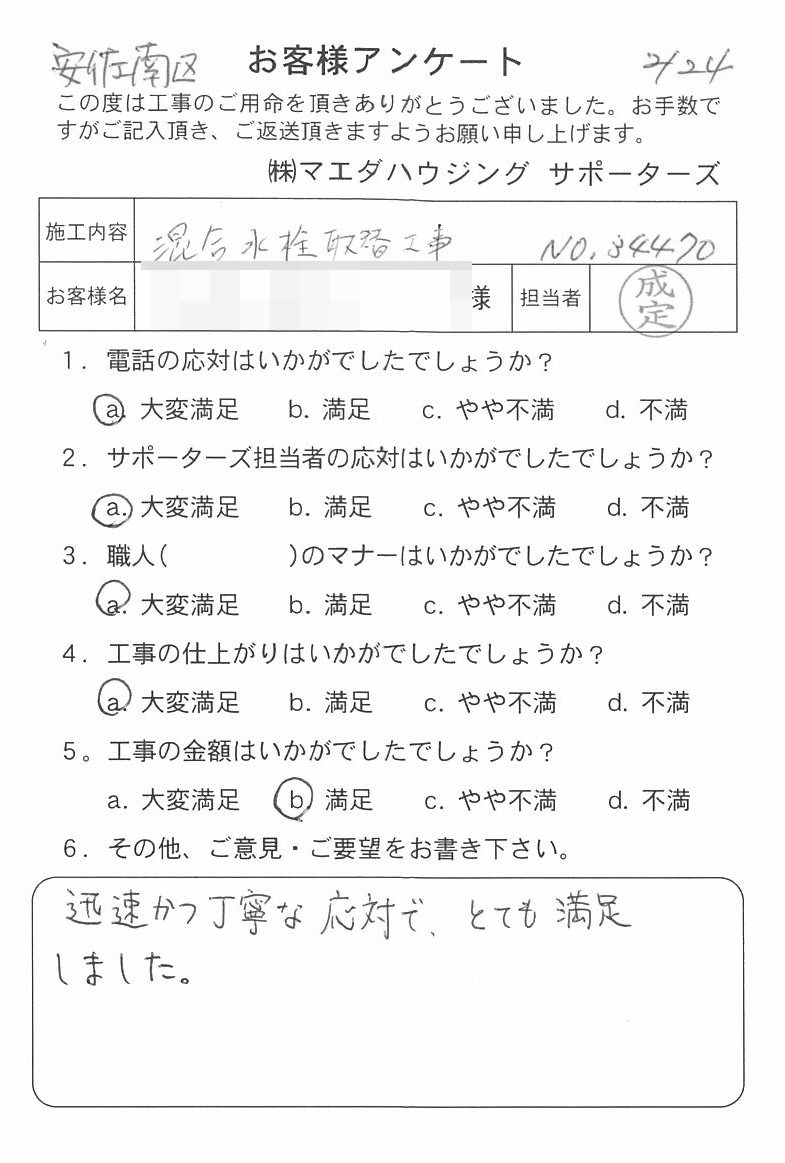 安佐南区 お客様アンケート 2/24
この度は工事のご用命を頂きありがとうございました。お手数で
すがご記入頂き、ご返送頂きますようお願い申し上げます。
㈱マエダハウジング サポーターズ
施工内容 混合水栓取替工事 NO.34470
お客様名 様 担当者 成定
1. 電話の応対はいかがでしたでしょうか?
a. 大変満足 b. 満足 c. やや不満 d. 不満
2. サポーターズ担当者の応対はいかがでしたでしょうか?
a. 大変満足 b. 満足 c. やや不満 d. 不満
3. 職人( )のマナーはいかがでしたでしょうか?
a. 大変満足 b. 満足 c. やや不満 d. 不満
4. 工事の仕上がりはいかがでしたでしょうか?
a. 大変満足 b. 満足 c. やや不満 d. 不満
5。工事の金額はいかがでしたでしょうか?
a. 大変満足 b. 満足 c. やや不満 d. 不満
6. その他、ご意見・ご要望をお書き下さい。
迅速かつ丁寧な応対で、とても満足
しました。